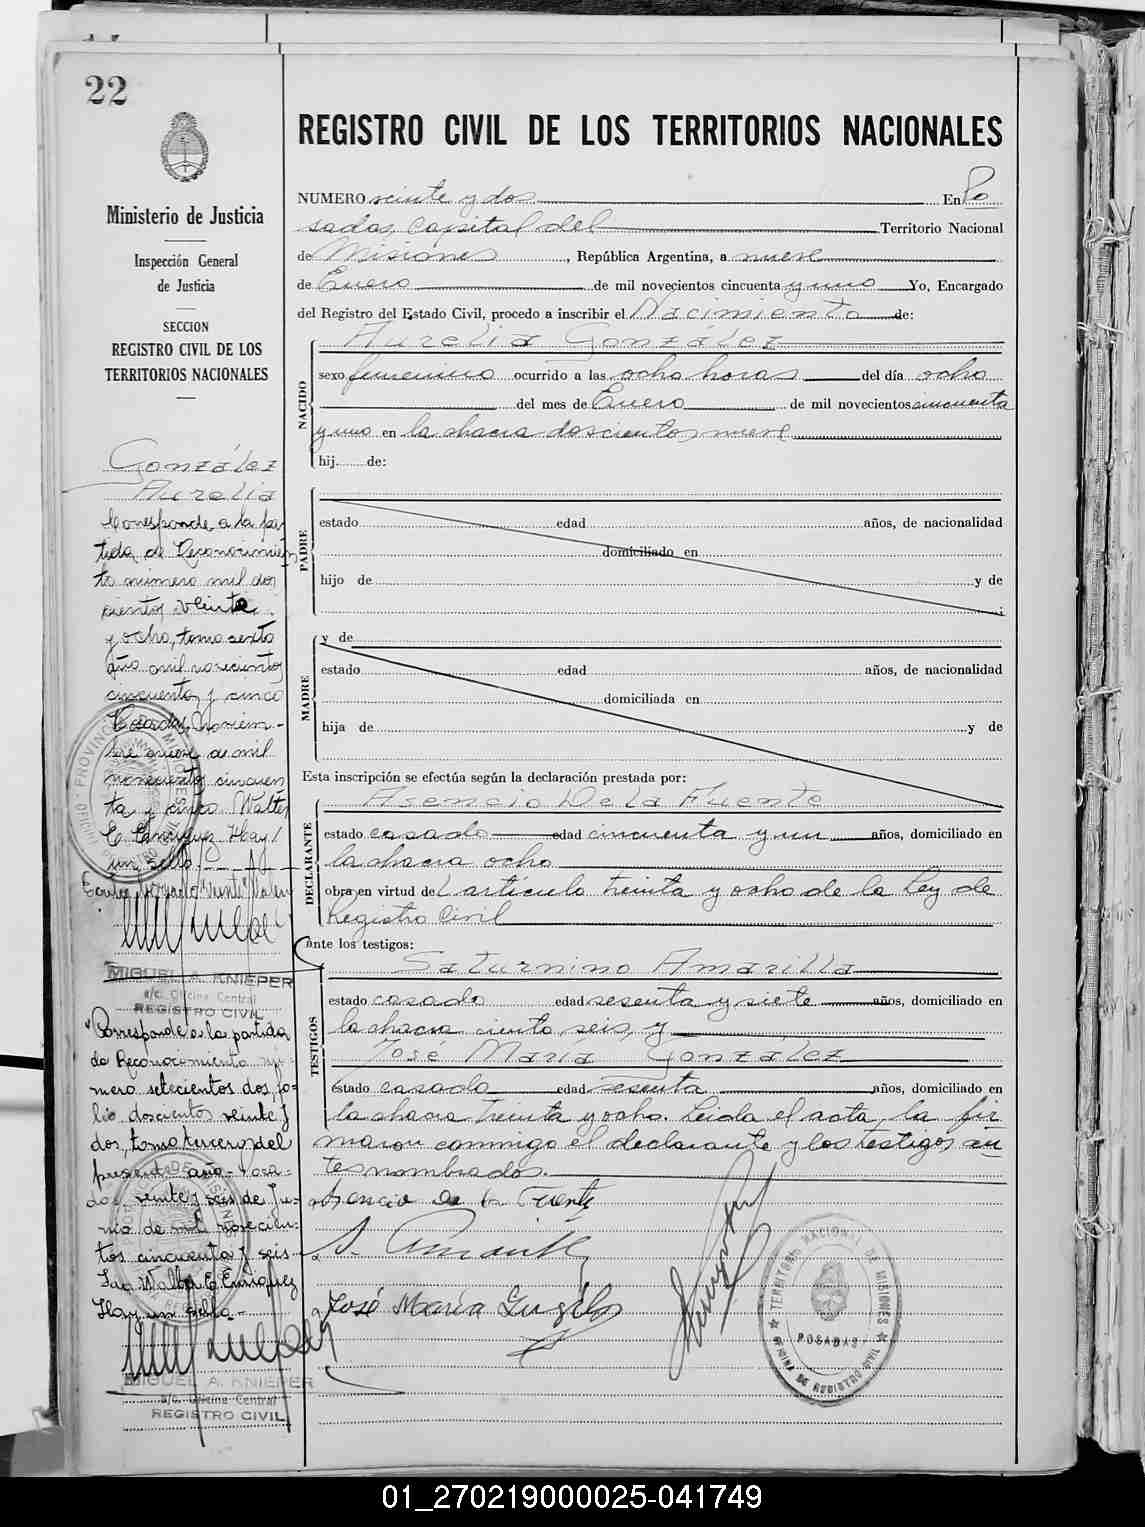 22
Ministerio de Justicia
Inspección General
de Justicia
SECCION
REGISTRO CIVIL DE LOS
TERRITORIOS NACIONALES
González
Aurelia
Corresponde a la par
tida de Reconocimien
to número mil dos
cientos veinte
y ocho, tomo sexto
año mil novecientos
cincuenta y cinco
Posadas, Noviem-
bre nueve de mil
novecientos cincuen
ta y cinco. Walter
C. Enriquez Hay
un sello
MIGUEL A. KNIEPER
a/c. Oficina Central
REGISTRO CIVIL
"Corresponde a la partida
de Reconocimiento nú-
mero setecientos dos, fo-
lio doscientos veinte y
dos, tomo tercero del
presente año. Posa-
das, veinte y seis de Ju-
nio de mil novecien-
tos cincuenta y seis-
Walter C. Enriquez
Hay un sello-
MIGUEL A. KNIEPER
a/c. Oficina Central
REGISTRO CIVIL
REGISTRO CIVIL DE LOS TERRITORIOS NACIONALES
NUMERO veinte y dos En Po
sadas, Capital del Territorio Nacional
de Misiones, República Argentina, a nueve
de Enero de mil novecientos cincuenta y uno Yo, Encargado
del Registro del Estado Civil, procedo a inscribir el Nacimiento de:
NACIDO
Aurelia González
sexo femenino ocurrido a las ocho horas del día ocho
del mes de Enero de mil novecientos cincuenta
y uno en la chacra doscientos nueve
hij de:
PADRE
estado edad años, de nacionalidad
domiciliado en
hijo de y de
;
MADRE
y de
estado edad años, de nacionalidad
domiciliada en
hija de y de
Esta inscripción se efectúa según la declaración prestada por:
DECLARANTE
Asencio De la Fuente
estado casado edad cincuenta y un años, domiciliado en
la chacra ocho
obra en virtud del artículo treinta y ocho de la Ley de
Registro Civil
ante los testigos:
TESTIGOS
Saturnino Amarilla
estado casado edad sesenta y siete años, domiciliado en
la chacra ciento seis, y
José María González
estado casado edad sesenta años, domiciliado en
la chacra treinta y ocho. Leída el acta, la fir
maron conmigo el declarante y los testigos an
tes nombrados.
Asencio de la Fuente
S. Amarilla
José María
TERRITORIO NACIONAL DE MISIONES
POSADAS
OFICINA DE REGISTRO CIVIL
01_270219000025-041749